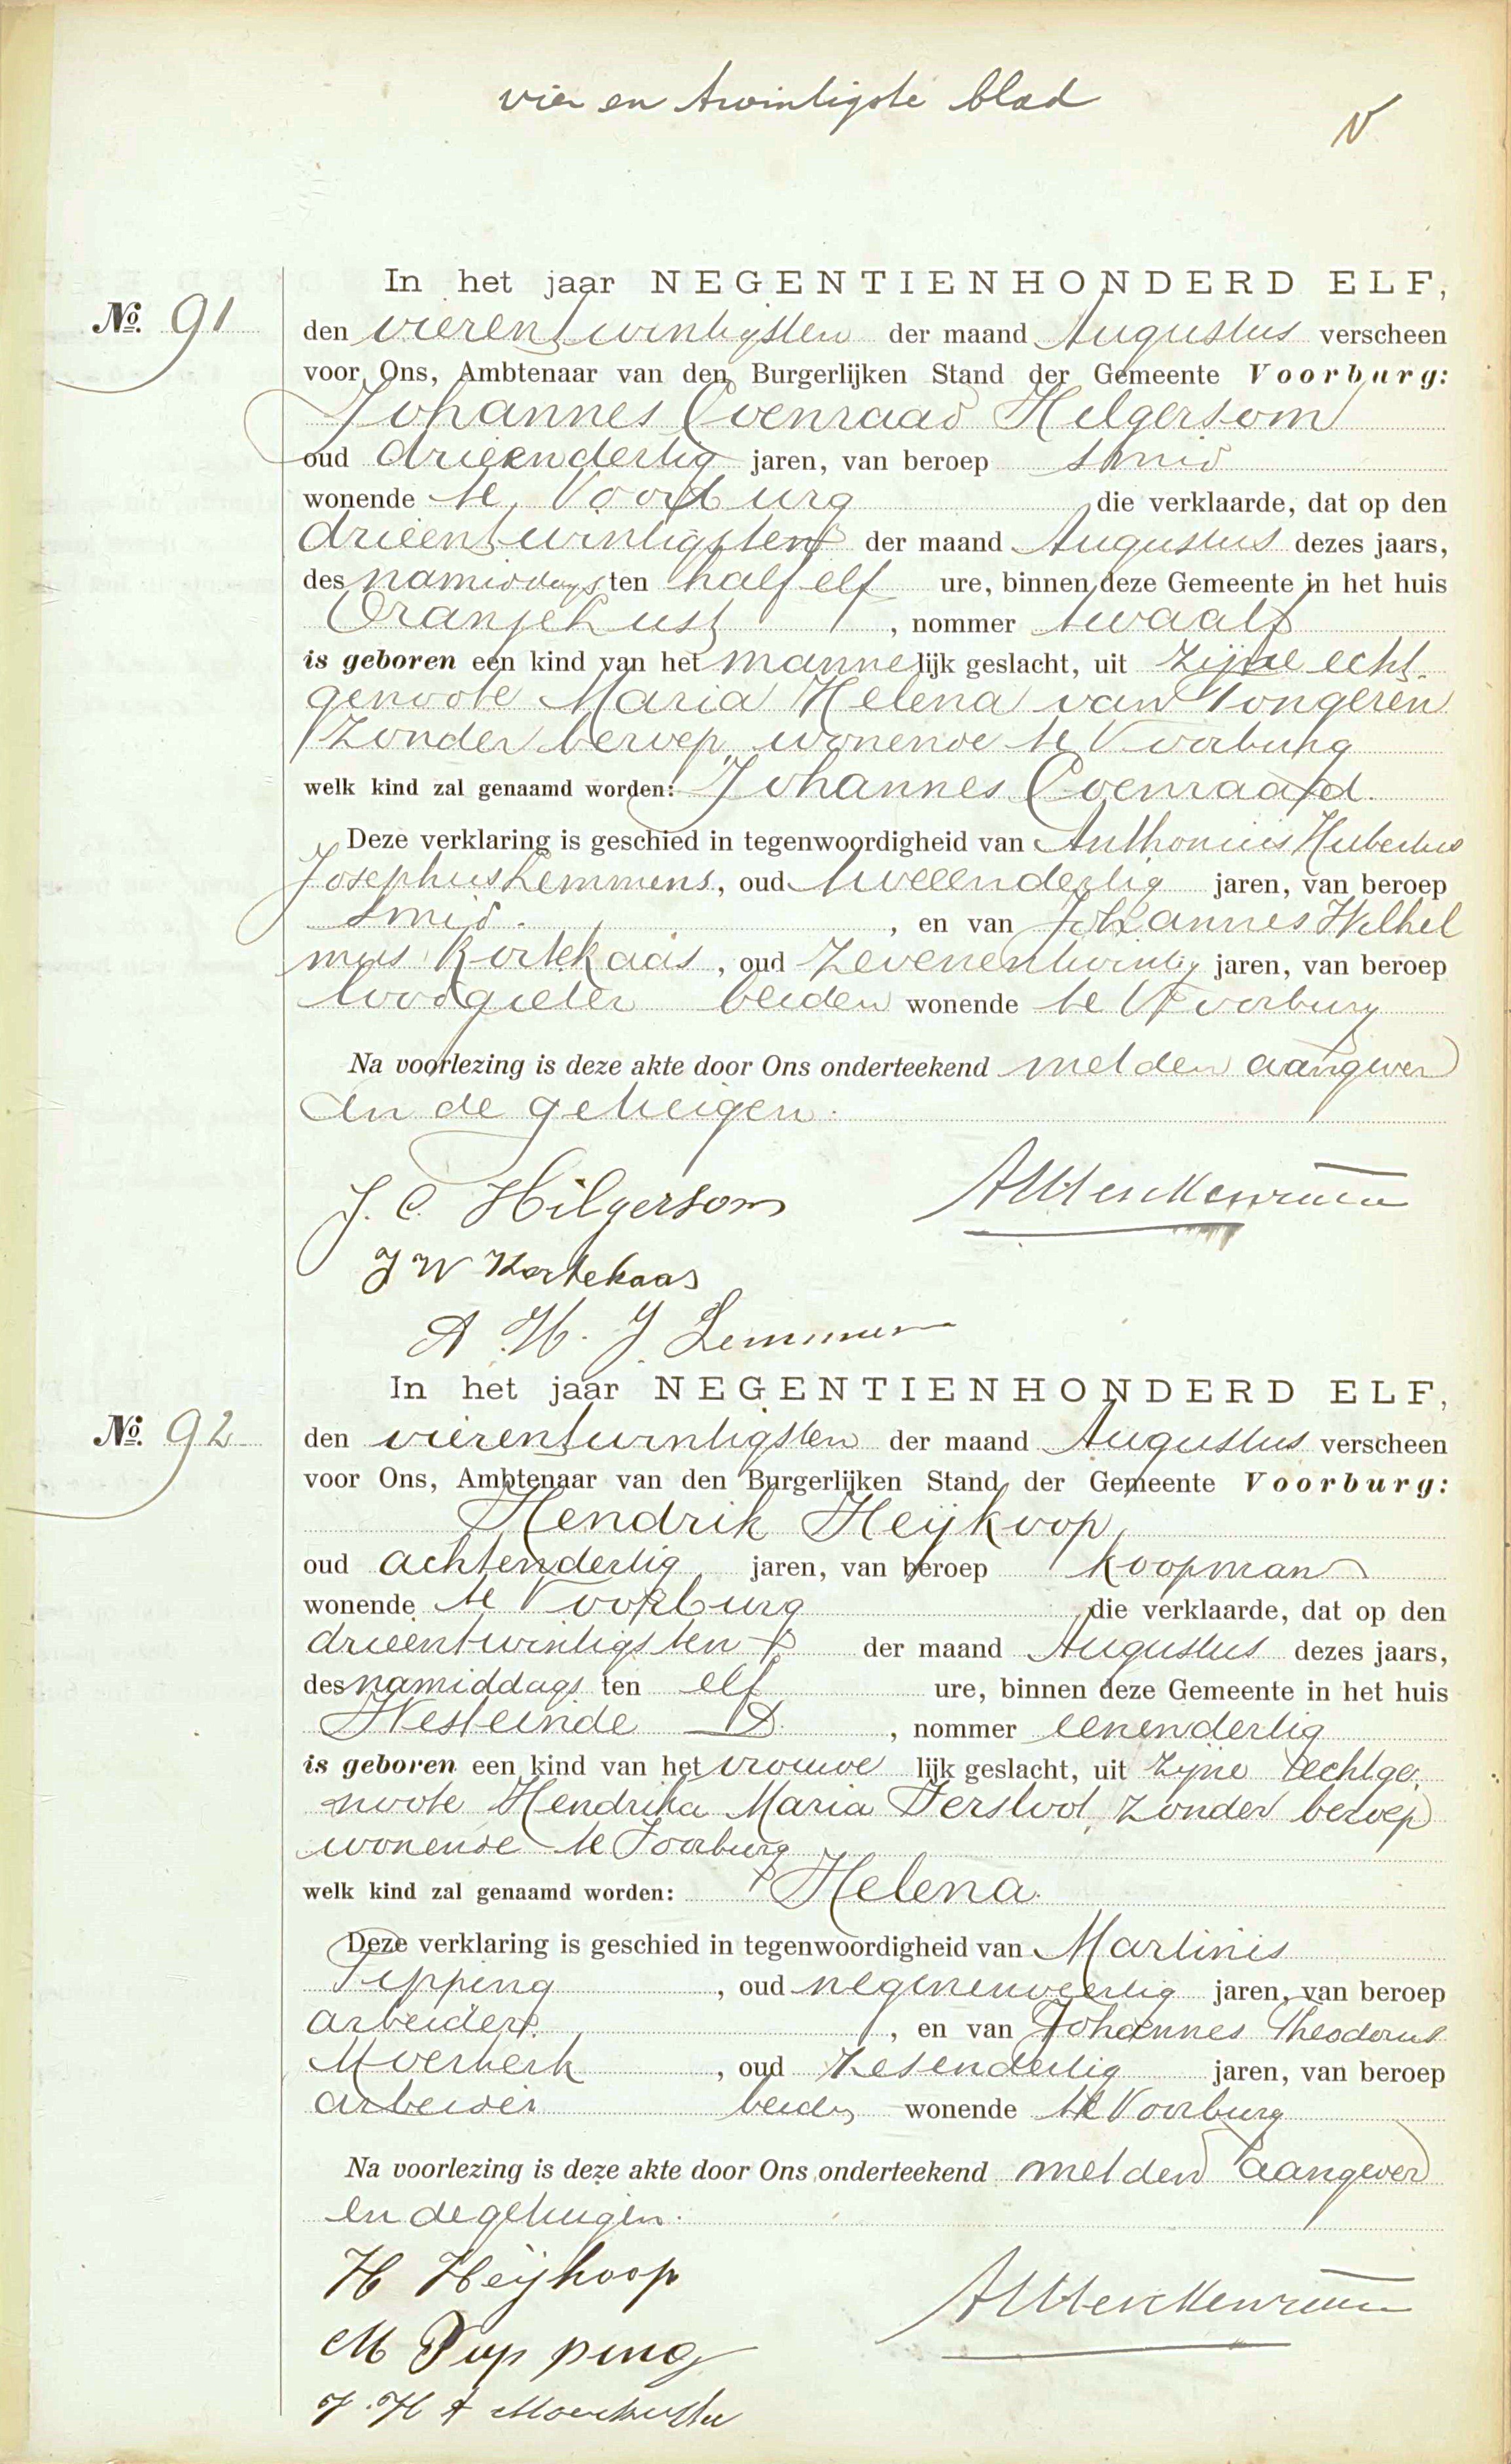 vier en twintigste blad
No. 91
In het jaar NEGENTIENHONDERD ELF,
den vierentwintigsten der maand Augustus verscheen
voor Ons, Ambtenaar van den Burgerlijken Stand der Gemeente Voorburg:
Johannes Coenraad Hilgersom
oud drieendertig jaren, van beroep smid
wonende te Voorburg die verklaarde, dat op den
drieentwintigsten der maand Augustus dezes jaars,
des namiddags ten half elf ure, binnen deze Gemeente in het huis
Oranjelust, nommer twaalf
is geboren een kind van het mannelijk geslacht, uit zijne echt-
genoote Maria Helena van Tongeren
zonder beroep, wonende te Voorburg
welk kind zal genaamd worden: Johannes Coenraad.
Deze verklaring is geschied in tegenwoordigheid van Anthonius Hubertus
Josephus Lemmens, oud tweeendertig jaren, van beroep
smid., en van Johannes Wilhel
mus Kortekaas, oud zevenentwintig jaren, van beroep
loodgieter beiden wonende te Voorburg
Na voorlezing is deze akte door Ons onderteekend met den aangever
en de getuigen.
J. C. Hilgersom
J W Kortekaas
A. H. J. Lemmens
No. 92
In het jaar NEGENTIENHONDERD ELF,
den vierentwintigsten der maand Augustus verscheen
voor Ons, Ambtenaar van den Burgerlijken Stand der Gemeente Voorburg:
Hendrik Heijkoop,
oud achtendertig jaren, van beroep koopman
wonende te Voorburg die verklaarde, dat op den
drieentwintigsten der maand Augustus dezes jaars,
des namiddags ten elf ure, binnen deze Gemeente in het huis
Westeinde, nommer eenendertig
is geboren een kind van het vrouwelijk geslacht, uit zijne echtge-
noote Hendrika Maria Verstoot, zonder beroep
wonende te Voorburg
welk kind zal genaamd worden: Helena.
Deze verklaring is geschied in tegenwoordigheid van Martinis
Pipping, oud negenenveertig jaren, van beroep
arbeider, en van Johannes Theodorus
Moerkerk, oud zesendertig jaren, van beroep
arbeider beiden wonende te Voorburg
Na voorlezing is deze akte door Ons onderteekend met den aangever
en de getuigen.
H Heijkoop
M Pupping